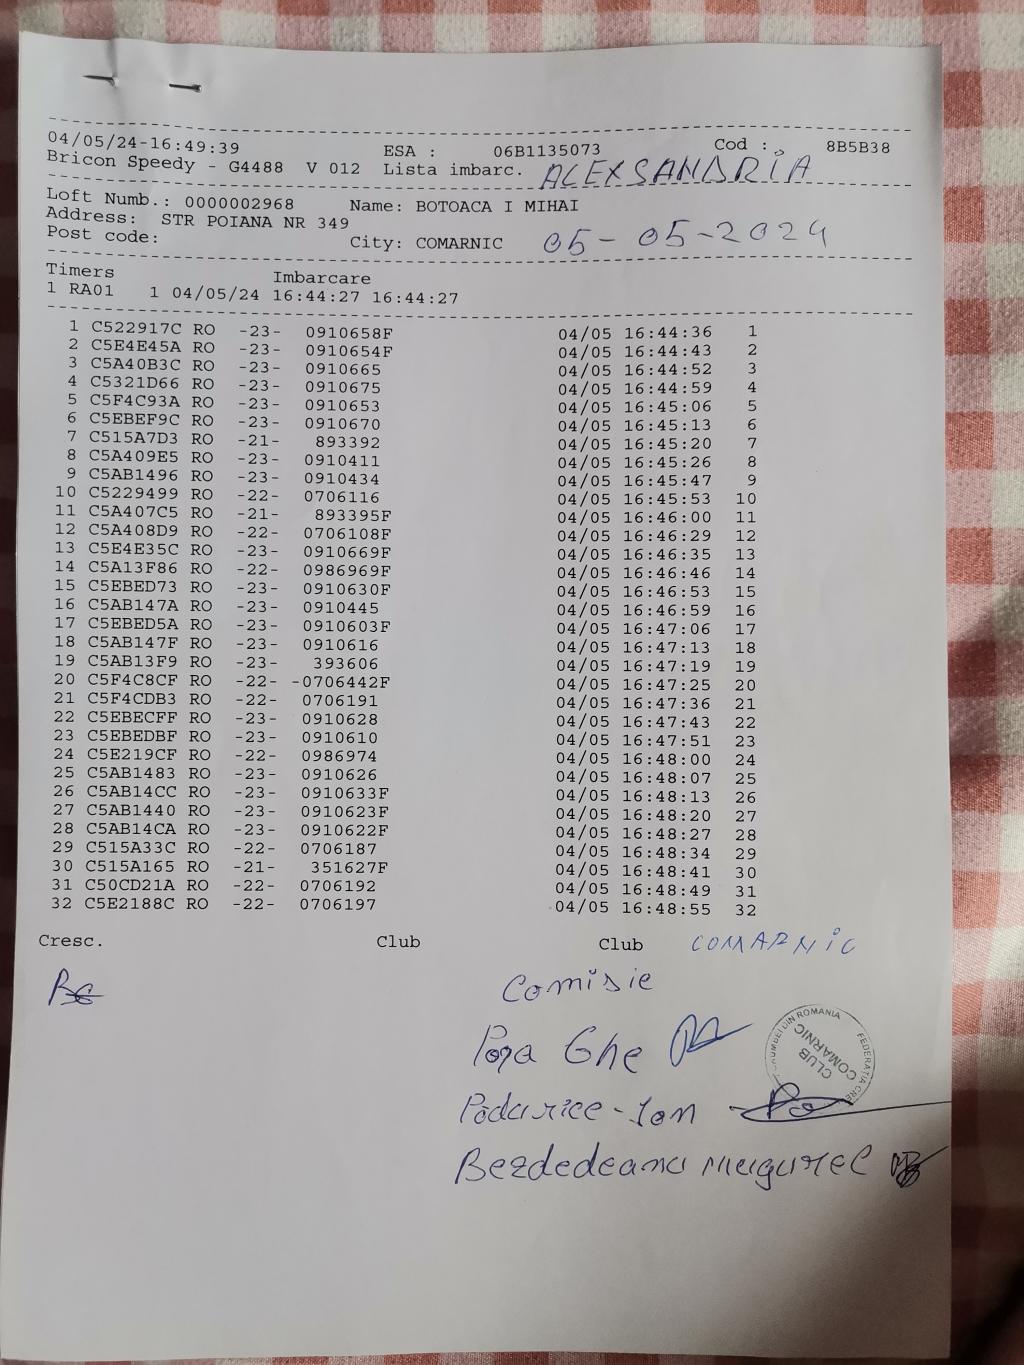 04/05/24-16:49:39 ESA : 06B1135073 Cod : 8B5B38
Bricon Speedy - G4488 V 012 Lista imbarc. ALEXSANDRIA
Loft Numb.: 0000002968 Name: BOTOACA I MIHAI
Address: STR POIANA NR 349
Post code: City: COMARNIC 05-05-2024
Timers Imbarcare
1 RA01 1 04/05/24 16:44:27 16:44:27
1 C522917C RO -23- 0910658F 04/05 16:44:36 1
2 C5E4E45A RO -23- 0910654F 04/05 16:44:43 2
3 C5A40B3C RO -23- 0910665 04/05 16:44:52 3
4 C5321D66 RO -23- 0910675 04/05 16:44:59 4
5 C5F4C93A RO -23- 0910653 04/05 16:45:06 5
6 C5EBEF9C RO -23- 0910670 04/05 16:45:13 6
7 C515A7D3 RO -21- 893392 04/05 16:45:20 7
8 C5A409E5 RO -23- 0910411 04/05 16:45:26 8
9 C5AB1496 RO -23- 0910434 04/05 16:45:47 9
10 C5229499 RO -22- 0706116 04/05 16:45:53 10
11 C5A407C5 RO -21- 893395F 04/05 16:46:00 11
12 C5A408D9 RO -22- 0706108F 04/05 16:46:29 12
13 C5E4E35C RO -23- 0910669F 04/05 16:46:35 13
14 C5A13F86 RO -22- 0986969F 04/05 16:46:46 14
15 C5EBED73 RO -23- 0910630F 04/05 16:46:53 15
16 C5AB147A RO -23- 0910445 04/05 16:46:59 16
17 C5EBED5A RO -23- 0910603F 04/05 16:47:06 17
18 C5AB147F RO -23- 0910616 04/05 16:47:13 18
19 C5AB13F9 RO -23- 393606 04/05 16:47:19 19
20 C5F4C8CF RO -22- -0706442F 04/05 16:47:25 20
21 C5F4CDB3 RO -22- 0706191 04/05 16:47:36 21
22 C5EBECFF RO -23- 0910628 04/05 16:47:43 22
23 C5EBEDBF RO -23- 0910610 04/05 16:47:51 23
24 C5E219CF RO -22- 0986974 04/05 16:48:00 24
25 C5AB1483 RO -23- 0910626 04/05 16:48:07 25
26 C5AB14CC RO -23- 0910633F 04/05 16:48:13 26
27 C5AB1440 RO -23- 0910623F 04/05 16:48:20 27
28 C5AB14CA RO -23- 0910622F 04/05 16:48:27 28
29 C515A33C RO -22- 0706187 04/05 16:48:34 29
30 C515A165 RO -21- 351627F 04/05 16:48:41 30
31 C50CD21A RO -22- 0706192 04/05 16:48:49 31
32 C5E2188C RO -22- 0706197 04/05 16:48:55 32
Cresc. Club Club COMARNIC
Comisie
Popa Ghe
CLUB
COMARNIC
DIN ROMANIA
FEDERATIA
Ion
Bezdedeanu Mugurel